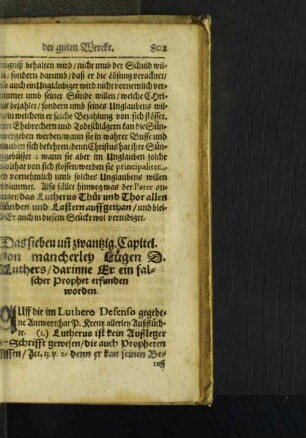 der guten Wercke. 802
engnuß behalten wird / nicht umb der Schuld wil
/ sondern darumb / daß er die Lösung verachtet /
so auch ein Unglåubiger wird nicht vornemlich ver
ammet umb seiner Sünde willen / welche Chri
bezahlet / sondern umb seines Unglaubens wil
in welchem er solche Bezahlung von sich stösset.
en Ehebrechern und Todtschlägern kan die Sün
vergeben werden / wann sie in wahrer Busse
auben sich bekehren / denn Christus hat ihre Sün
gebüsset : wann sie aber im Unglauben solche
olthat von sich stossen / werden sie principaliter
nd vornehmlich umb solches Unglaubens willen
dammet. Also fället hinweg was der Pater an
zeuget / das Lutherus Thür und Thor allen
ünden und Lastern auffgethan / und blei
Er auch in diesem Stücke wol vertheidiget.
Das sieben uñ zwantzig. Capitel.
von mancherley Lügen D.
Luthers / darinne Er ein fal-
scher Prophet erfunden
worden.
AUff die im Luthero Defenso gegebe
ne Antwort hat P. Kreutz allerley Außflüch
te. (1.) Lutherus ist kein Außleger
Schrifft gewesen / die auch Propheten
issen / Act. 13. v. 2. denn er kan seinen Be-
ruff